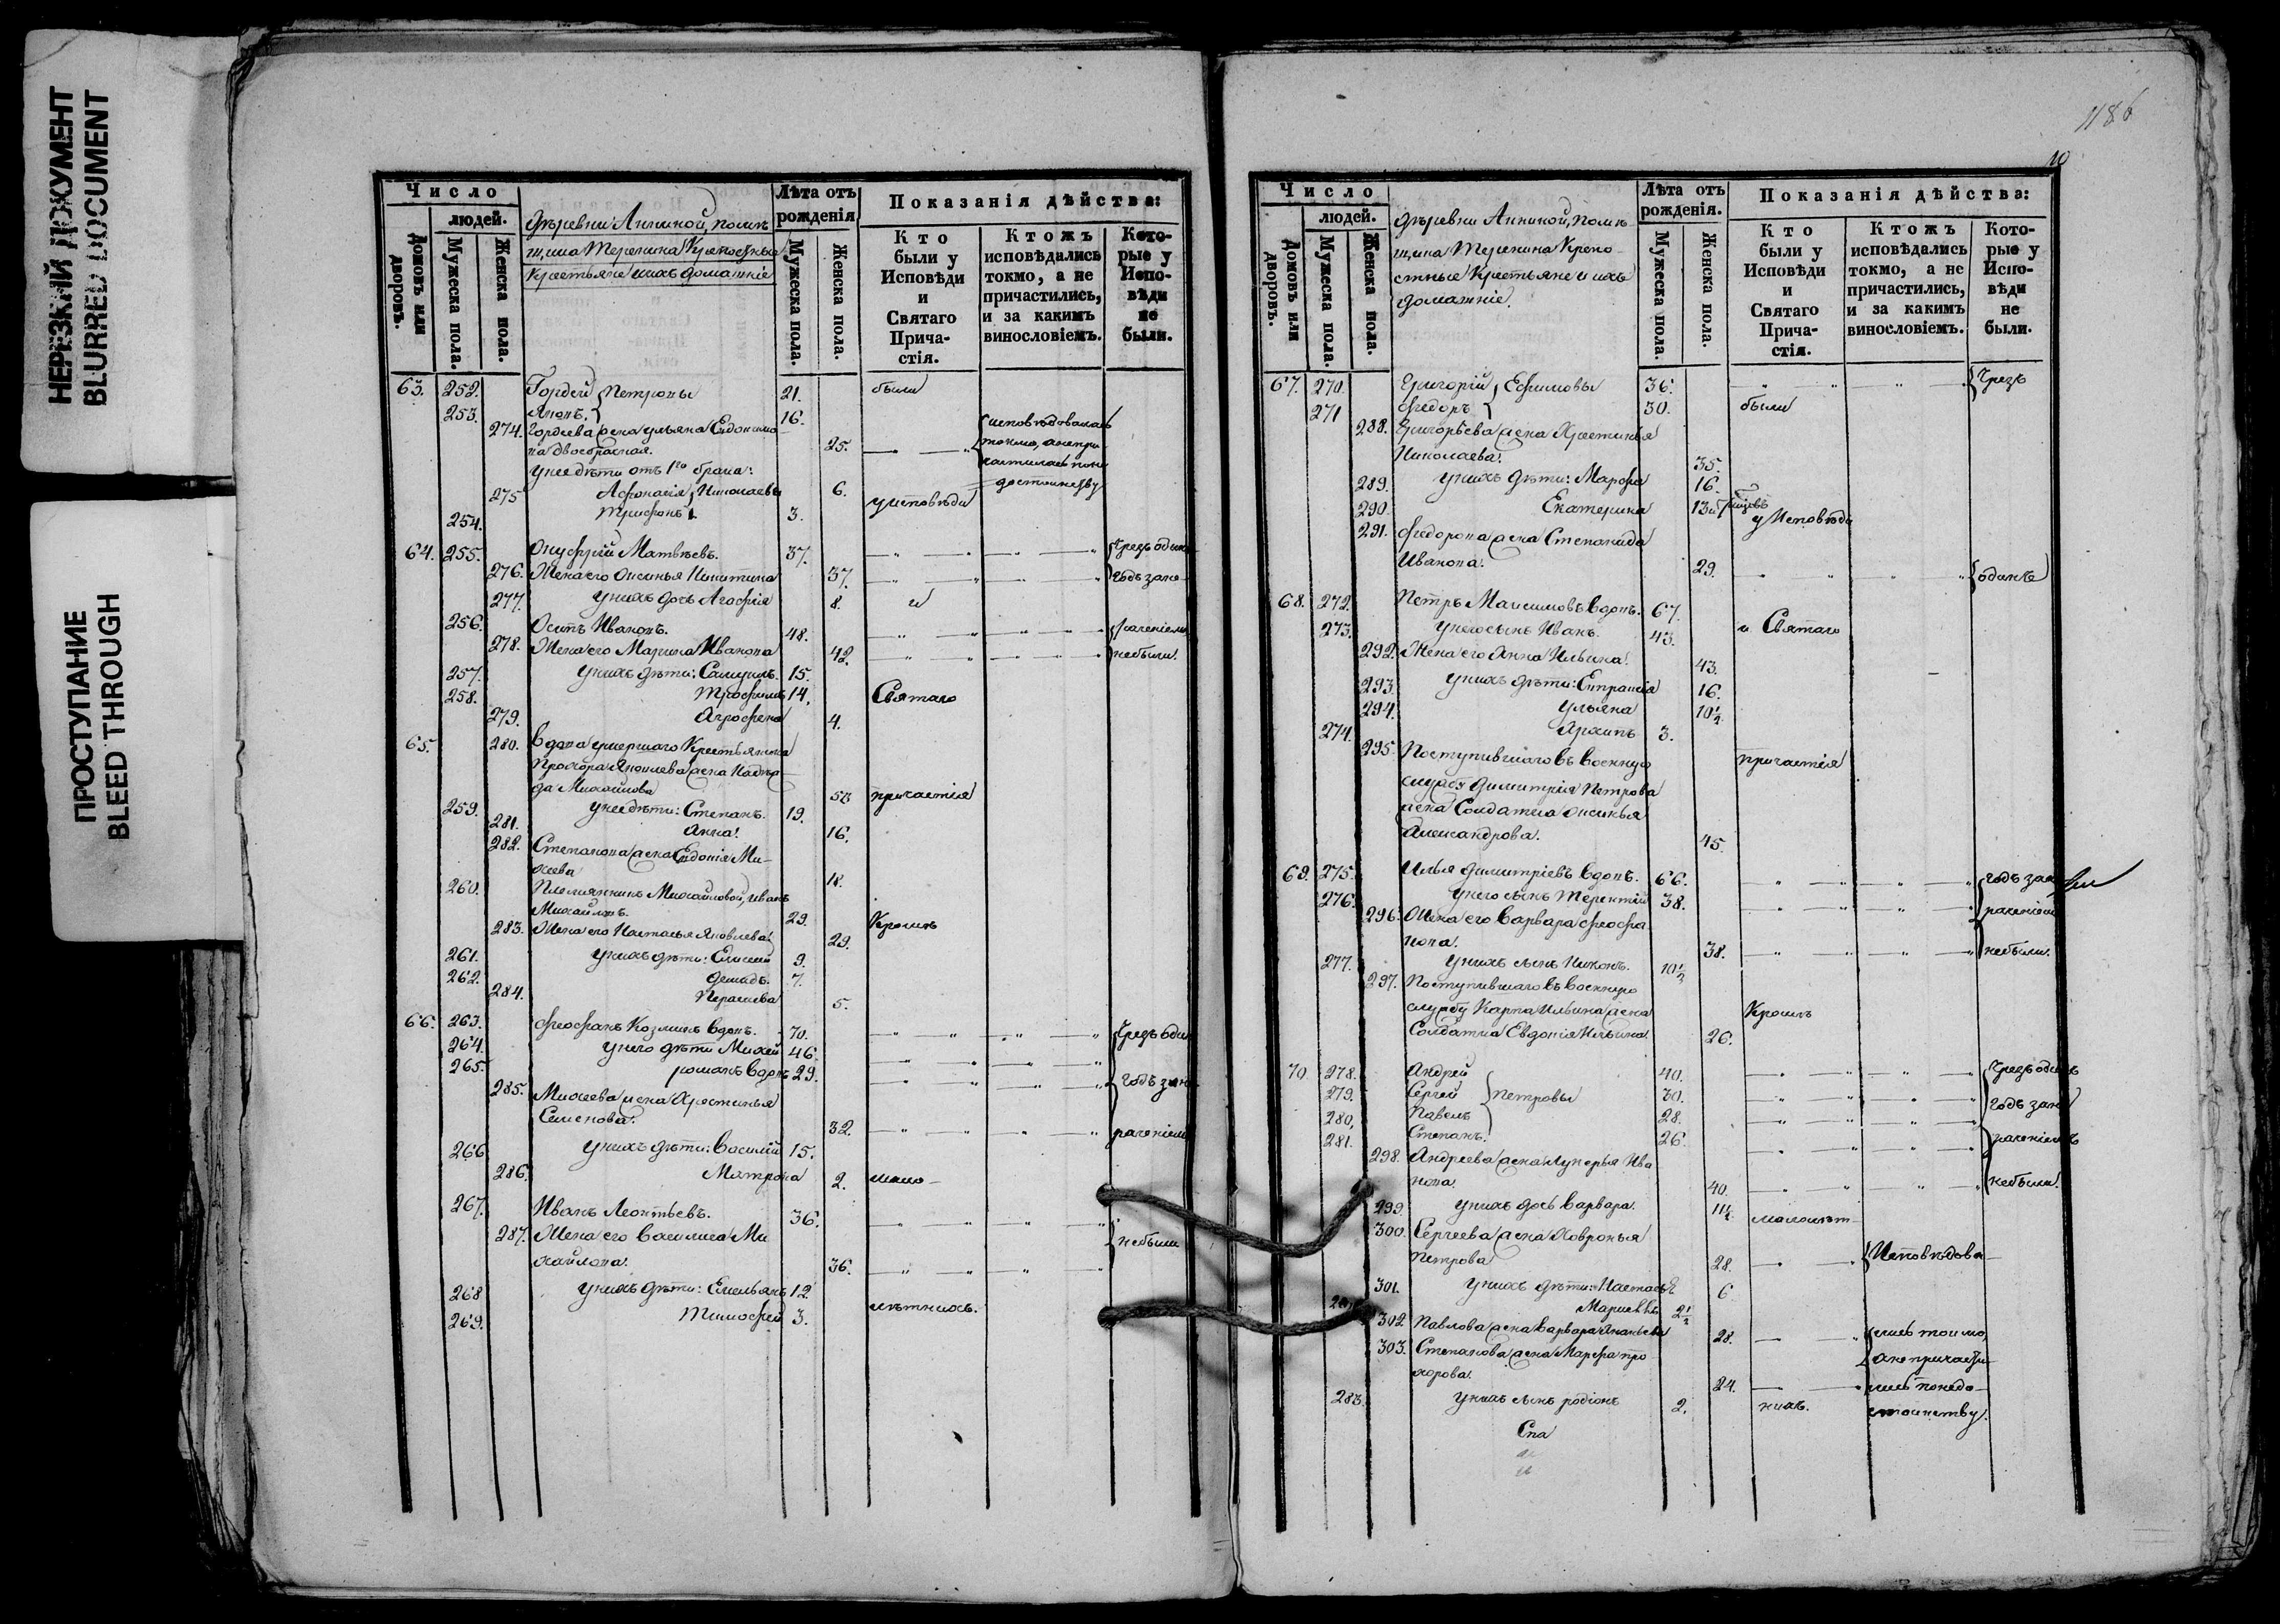 НЕРЕЗКИЙ ДОКУМЕНТ
BLURRED DOCUMENT
ПРОСТУПАНИЕ
BLEED THROUGH
Число
людей.
Домовъ или дворовъ.
Мужеска пола.
Женска пола.
Деревни Анниной, помѣ-
щика Теренина Крепостные
Крестьяне и ихъ домашніе
Лѣта отъ рожденія
Мужеска пола.
Женска пола.
Показанія дѣйства:
Кто были у Исповѣди и Святаго Прича-стія.
Ктожъ исповѣдались токмо, а не причастились, и за какимъ винословіемъ.
Кото-рые у Испо-вѣди не были.
63. 252. Гордей } Петровы 21. были
253. 16.
274. Гордеева жена Ульяна Евдокимо-
ва двоебрачная. 25. исповѣдовалась
токмо, а не при-
частилась по не-
достоинству
у нее дѣти отъ 1го брака:
275 Афонасія } Николаевы 6. у исповѣди
254. Трифонъ 3.
64. 255. Онуфрій Матвѣевъ. 37. Чрезъ одинъ
276. Жена его Оксинья Никитина 37. годъ зане-
277. у нихъ дочь Агафія 8. и
256. Осипъ Ивановъ. 48. раченіемъ
278. Жена его Марина Иванова 42. небыли.
257. у нихъ дѣти: Самуилъ. 15.
258. Трофимъ 14. Святаго
279. Агрофена 4.
65. 280. Вдова умершаго Крестьянина
Прохора Яковлева жена Надеж-
да Михайлова 53 причастія
259. у нее дѣти: Степанъ. 19.
281. Анна. 16.
282. Степанова жена Евдокія Ми-
хеева 18.
260. Племянникъ Михайловой, Иванъ
Михайловъ. 29. Кромѣ
283. Жена его Настасья Яковлева. 29.
261. у нихъ дѣти: Елисей 9.
262. Демидъ. 7.
284. Парасева 5.
66. 263. Феофанъ Козминъ вдовъ. 70. Чрезъ одинъ
264. у него дѣти Михей 46.
265. романъ вдовъ 29. годъ зане
285. Михеева жена Христинья
Семенова. 32. раченіемъ
266 у нихъ дѣти: Василій 15.
286. Матрона 2. мало-
267. Иванъ Леонтьевъ. 36.
287. Жена его Василиса Ми
хайлова. 36. небыли
268 у нихъ дѣти: Емельянъ 12
269. Тимофей 3. лѣтнихъ.
1186
10
Число
людей.
Домовъ или дворовъ.
Мужеска пола.
Женска пола.
Деревни Анниной, помѣ-
щика Теренина Крепо-
стные Крестьяне и ихъ
домашніе.
Лѣта отъ рожденія.
Мужеска пола.
Женска пола.
Показанія дѣйства:
Кто были у Исповѣди и Святаго Прича-стія.
Ктожъ исповѣдались токмо, а не причастились, и за какимъ винословіемъ.
Кото-рые у Испо-вѣди не были.
67. 270. Григорій } Ефимовы 36. Чрезъ
271 Федоръ 30. были
288. Григорьева жена Христинья
Николаева. 35.
289. у нихъ дѣти: Марфа 16.
290. Екатерина 13 у Исповѣди
291. Федорова жена Степанида
Иванова. 29. одинъ
68. 272. Петръ Максимовъ вдовъ. 67.
273. у него сынъ Иванъ. 43. и Святаго
292. Жена его Анна Ильина. 43.
293. у нихъ дѣти: Евпраксія 16.
294. Ульяна 10½
274. Архипъ 3.
295. Поступившаго въ военную причастія
службу Димитрія Петрова
жена Солдатка Оксинья
Александрова. 45.
69. 275. Илья Димитріевъ вдовъ. 66. годъ зане
276. у него сынъ Терентій 38. раченіемъ
296. Жена его Варвара Феофа
нова. 38. небыли.
277. у нихъ сынъ Никонъ. 10½
297. Поступившаго въ военную
службу Карпа Ильина жена Кромѣ
Солдатка Евдокія Ильина. 26.
70 278. Андрей 40. Чрезъ одинъ
279. Сергей } Петровы 30.
280. Павелъ 28. годъ зане
281. Степанъ. 26. раченіемъ
298. Андреева жена Лукерья Ива
нова. 40. небыли.
299. у нихъ дочь Варвара. 11½ малолѣт-
300. Сергеева жена Ховронья
Петрова 28. Исповѣдова-
301. у нихъ дѣти: 6
2½
302. Павлова жена Варвара Ананьева 28. лись токмо,
303. Степанова жена Марфа Про а не причасти-
хорова. 24. лись по недо-
283. у нихъ сынъ родіонъ 2. нихъ. стоинству.
Спа